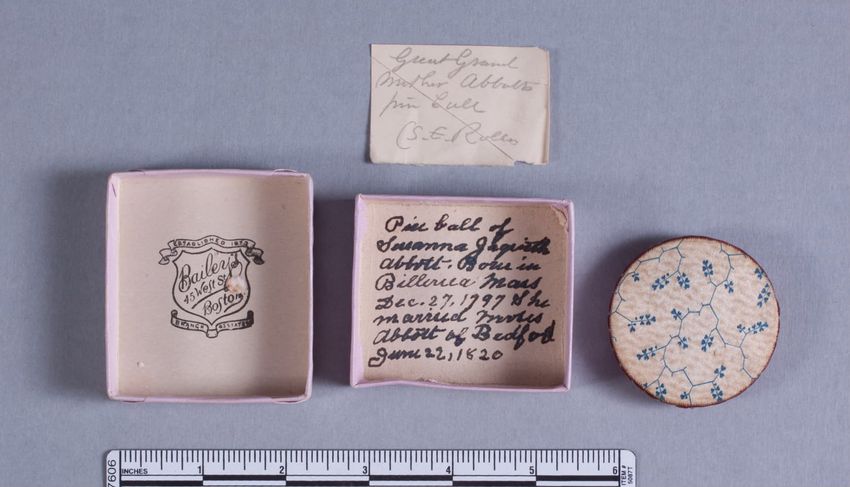 Great Grand
Mother Abbotts
pin ball
(S. E. Rolles
ESTABLISHED 1873
Bailey's
45 West St.
Boston
BRANCH
Pin ball of
Susanna Jaquith
Abbott. Born in
Billerica Mass
Dec. 27, 1797 She
married Moses
Abbott of Bedford
June 22, 1820
INCHES 1 2 3 4 5 6
7606
ITEM #